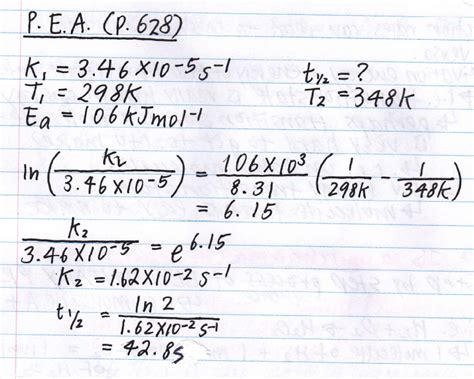 P.E.A. (P.628)
K₁ = 3.46X10⁻⁵s⁻¹ t½ = ?
T₁ = 298K T₂ = 348K
Ea = 106kJmol⁻¹
ln(k₂/3.46X10⁻⁵) = 106X10³/8.31 (1/298K - 1/348K)
= 6.15
k₂/3.46X10⁻⁵ = e^6.15
K₂ = 1.62X10⁻² s⁻¹
t½ = ln 2/1.62X10⁻² s⁻¹
= 42.8s